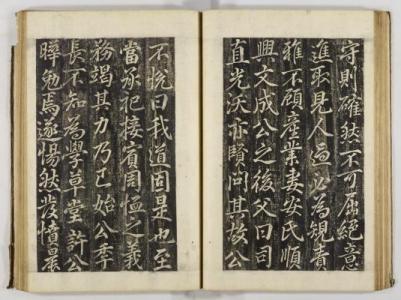 守則確然不可屈絕意
進取見人過必為規責
雅不顧產業妻安氏順
興文成公之後父曰司
直光沃亦賢問其故公
不悅曰我道固是也至
當承祀接賓周恤之義
務竭其力乃已始公季
長不知為學草堂許公
曄勉焉遂惕然發憤晨